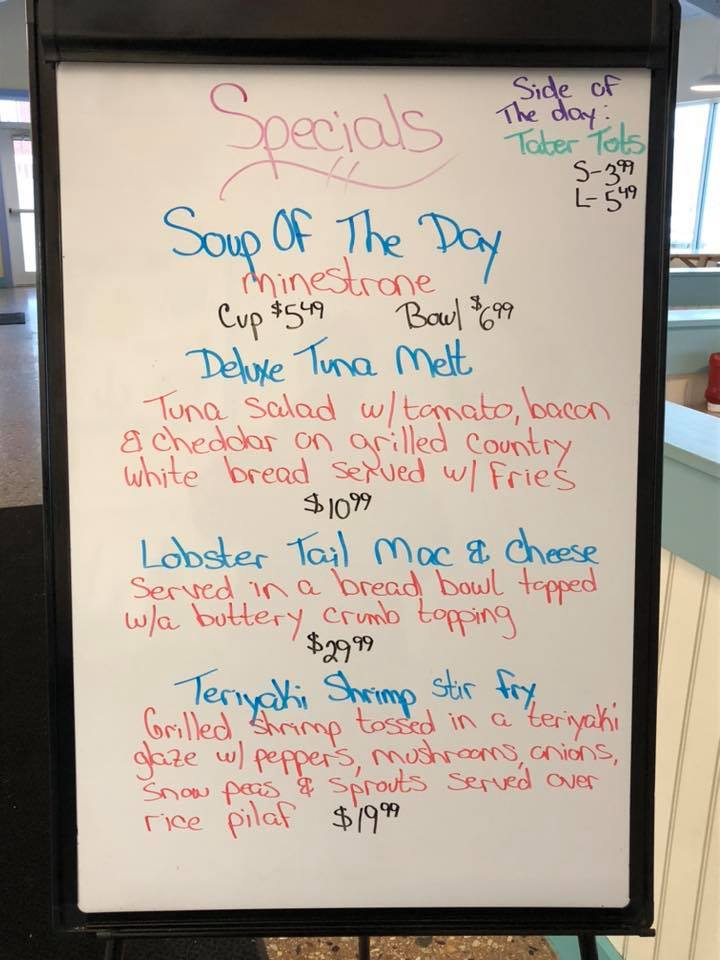 Specials
Side of
The day:
Tater Tots
S-3.99
L-5.49
Soup Of The Day
minestrone
Cup $5.49 Bowl $6.99
Deluxe Tuna Melt
Tuna Salad w/tomato, bacon
& cheddar on grilled country
white bread served w/ Fries
$10.99
Lobster Tail Mac & Cheese
Served in a bread bowl topped
w/a buttery crumb topping
$29.99
Teriyaki Shrimp stir fry
Grilled shrimp tossed in a teriyaki
glaze w/ peppers, mushrooms, onions,
snow peas & sprouts served over
rice pilaf $19.99